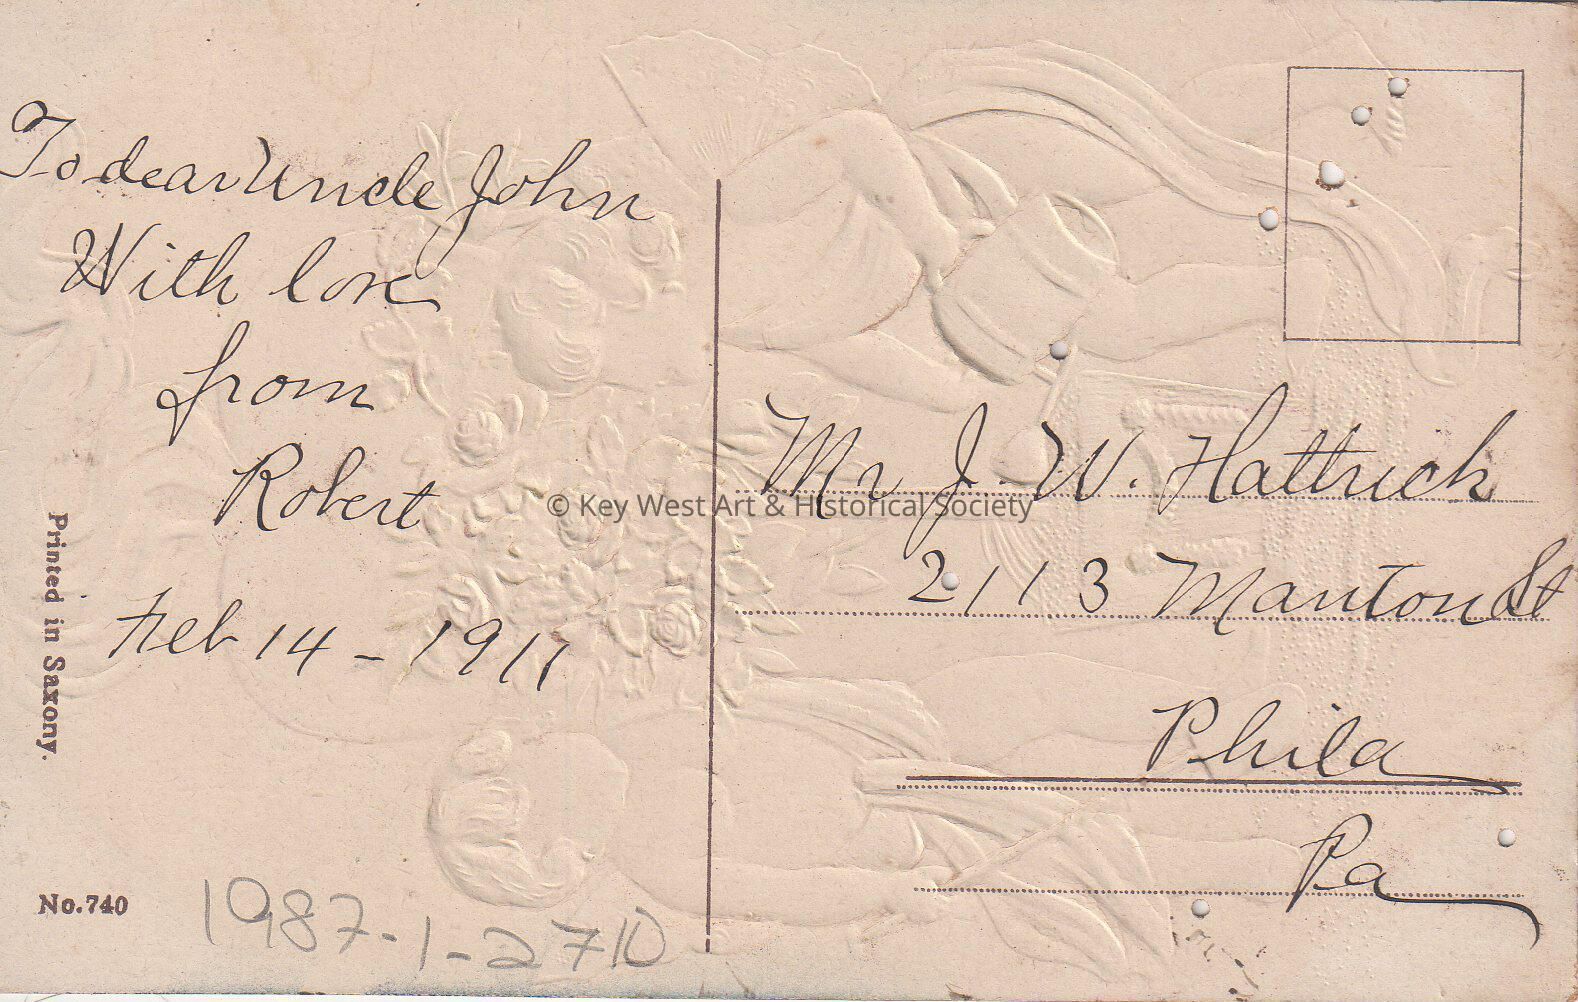 To dear Uncle John
With love
from
Robert
Feb 14 - 1911
Mr J. W. Hattrick
2113 Manton St
Phila
Pa
Printed in Saxony.
No. 740
1987-1-2710
© Key West Art & Historical Society